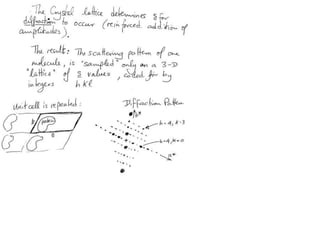 The Crystal lattice determines S for
diffraction to occur (reinforced addition of
amplitudes).
The result: The scattering pattern of one
molecule, is "sampled" only on a 3-D
"lattice" of S values, coded for by
integers h k l
Unit cell is repeated:
Diffraction Pattern
b*
b
a
h=4, k=3
h=4, k=0
a*